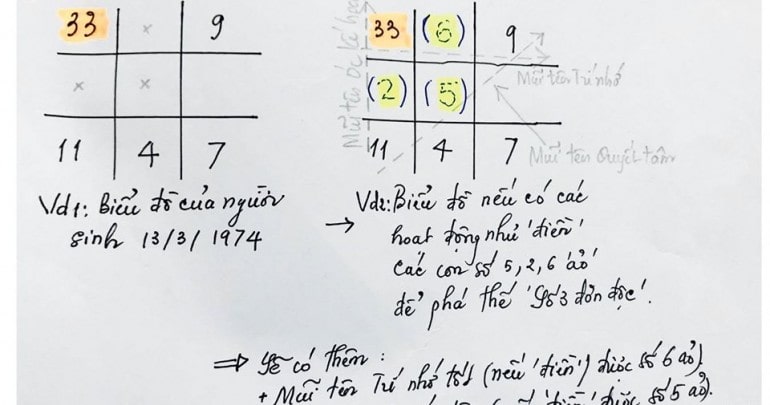 33 × 9
× ×
11 4 7
Vd1: Biểu đồ của người
sinh 13/3/1974
Mũi tên Óc kế hoạch
33 (6) 9
(2) (5)
11 4 7
Mũi tên Trí nhớ
Mũi tên Quyết tâm
→ Vd2: Biểu đồ nếu có các
hoạt động như 'điền'
các con số 5, 2, 6 'ảo'
để phá thế 'Số 3 đơn độc'.
⇒ Sẽ có thêm:
+ Mũi tên Trí nhớ tốt (nếu 'điền') được số 6 ảo)
được số 5 ảo).